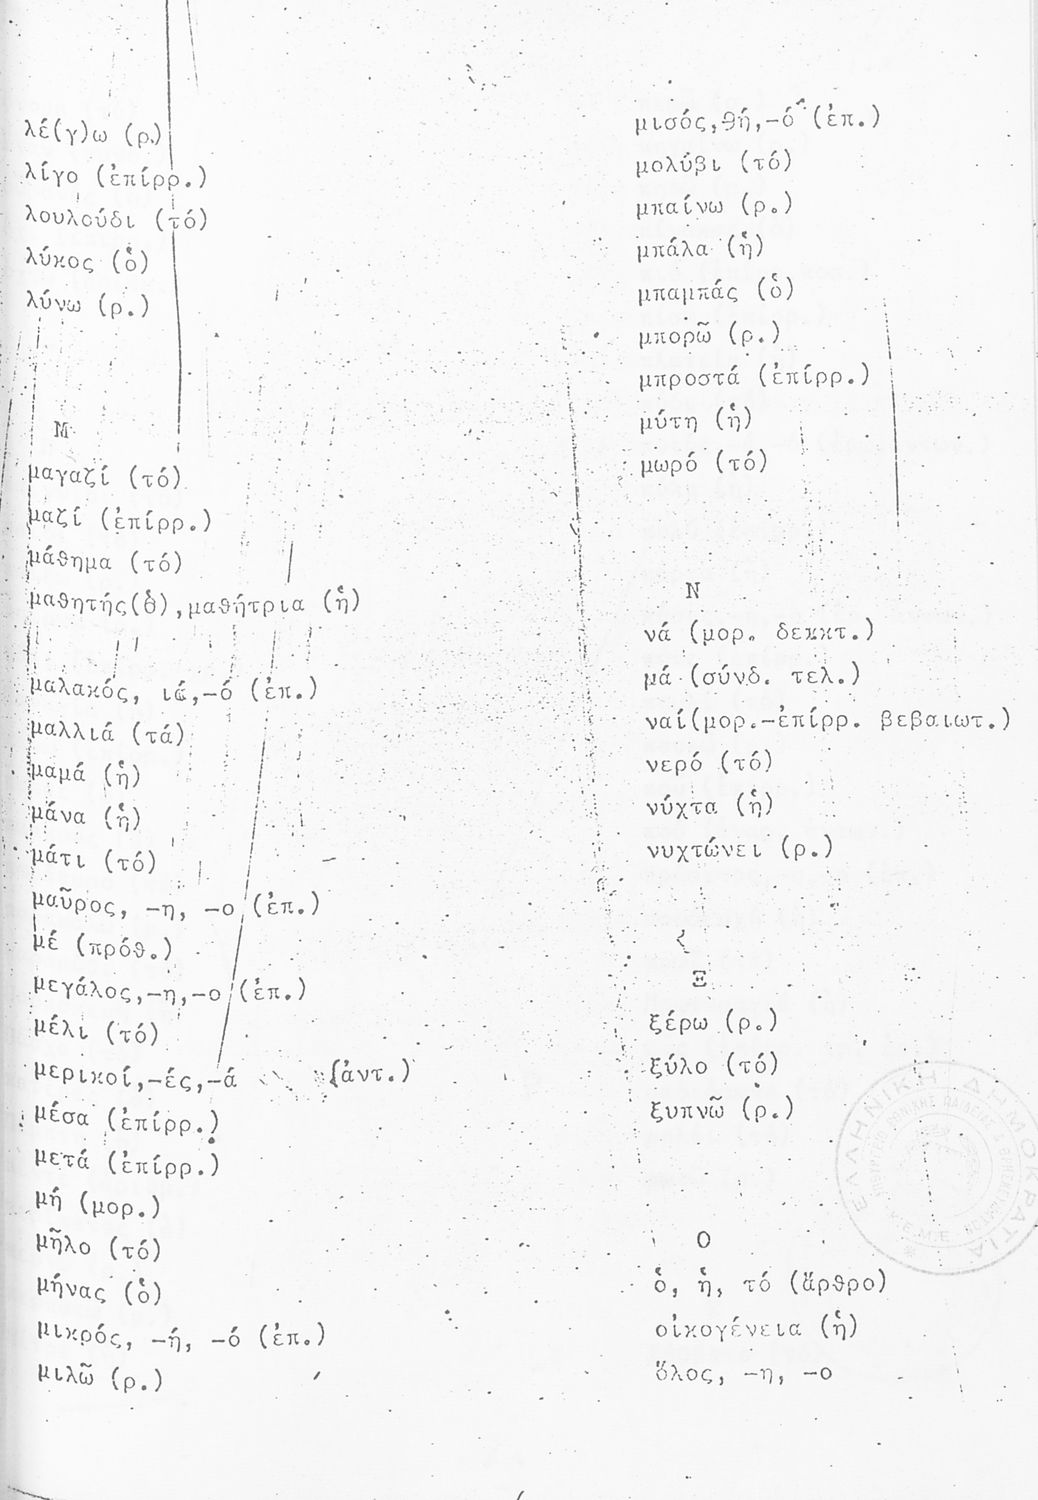 λέ(γ)ω (ρ.)
λίγο (ἐπίρρ.)
λουλούδι (τό)
λύκος (ὁ)
λύνω (ρ.)
Μ
μαγαζί (τό)
μαζί (ἐπίρρ.)
μάθημα (τό)
μαθητής(ὁ),μαθήτρια (ἡ)
μαλακός, ιά,-ό (ἐπ.)
μαλλιά (τά)
μαμά (ἡ)
μάνα (ἡ)
μάτι (τό)
μαῦρος, -η, -ο (ἐπ.)
μέ (πρόθ.)
μεγάλος,-η,-ο (ἐπ.)
μέλι (τό)
μερικοί,-ές,-ά (ἀντ.)
μέσα (ἐπίρρ.)
μετά (ἐπίρρ.)
μή (μορ.)
μῆλο (τό)
μήνας (ὁ)
μικρός, -ή, -ό (ἐπ.)
μιλῶ (ρ.)
μισός,θή,-ό (ἐπ.)
μολύβι (τό)
μπαίνω (ρ.)
μπάλα (ἡ)
μπαμπάς (ὁ)
μπορῶ (ρ.)
μπροστά (ἐπίρρ.)
μύτη (ἡ)
μωρό (τό)
Ν
νά (μορ. δεκκτ.)
μά (σύνδ. τελ.)
ναί(μορ.-ἐπίρρ. βεβαιωτ.)
νερό (τό)
νύχτα (ἡ)
νυχτώνει (ρ.)
Ξ
ξέρω (ρ.)
ξύλο (τό)
ξυπνῶ (ρ.)
Ο
ὁ, ἡ, τό (ἄρθρο)
οἰκογένεια (ἡ)
ὅλος, -η, -ο
ΕΛΛΗΝΙΚΗ ΔΗΜΟΚΡΑΤΙΑ
Κ.Ε.Μ.Ε.